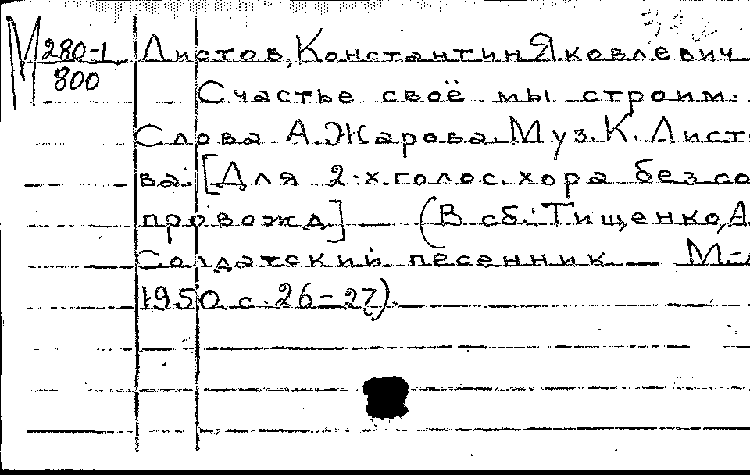 М 280-1 Листов, Константин Яковлевич
800
Счастье своё мы строим.
Слова А. Жарова. Муз. К. Лист
ва. [Для 2-х голос. хора без со
провожд] — (В сб.: Тищенко, А
Солдатский песенник — М-
1950 с. 26-27).